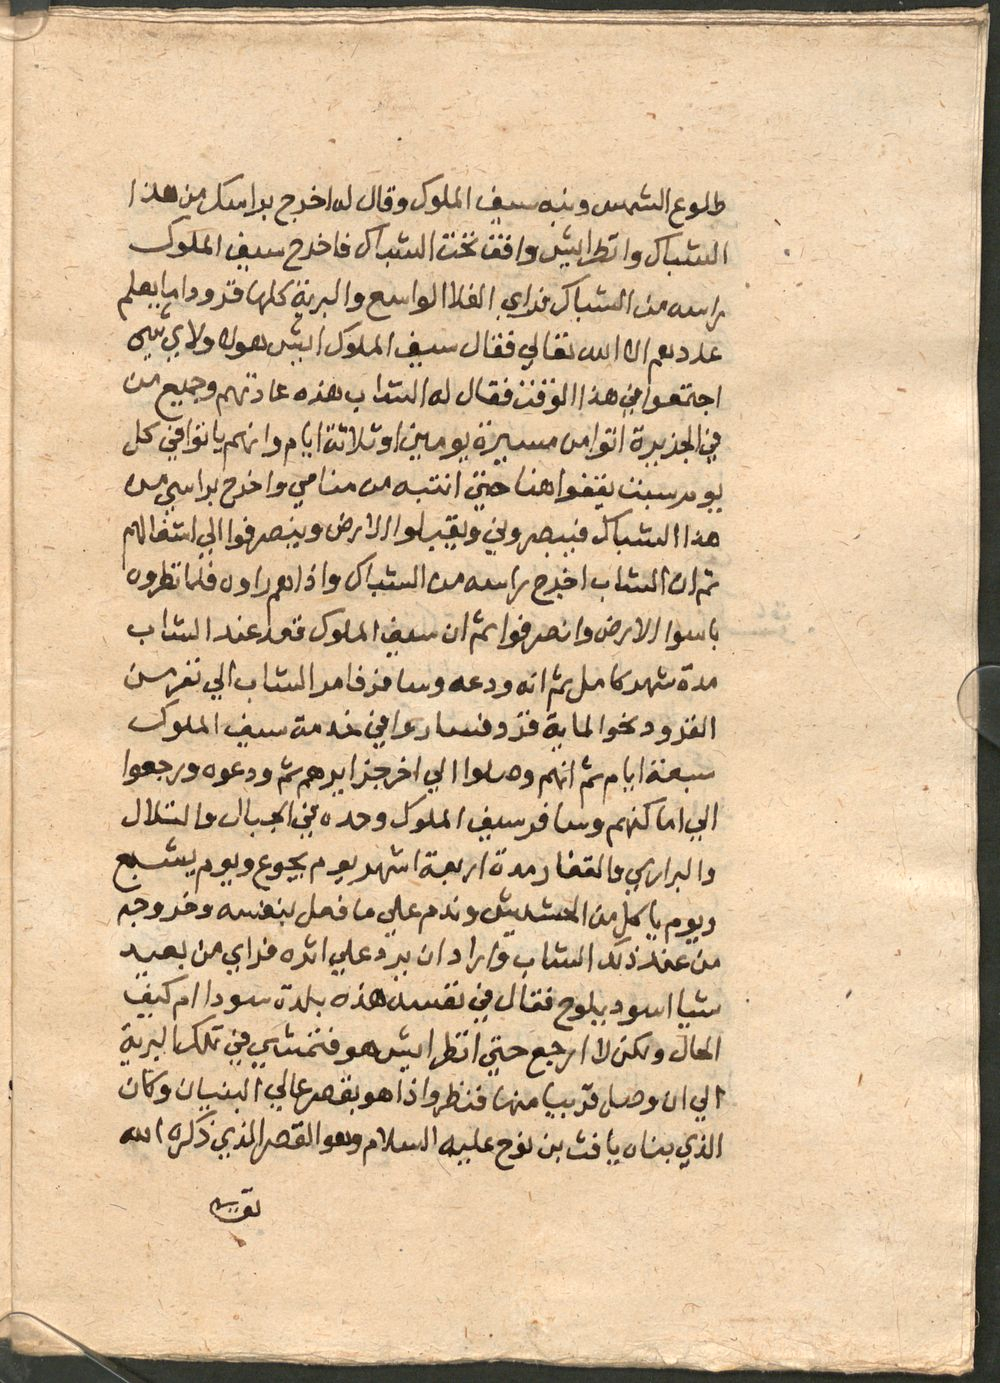 طلوع الشمس ونبه سيف الملوك وقال له اخرج براسك من هذا
الشباك وانظر ايش واقف تحت الشباك فاخرج سيف الملوك
راسه من الشباك فراي الفلا الواسع والبرية كلها قرود ما يعلم
عددهم الا الله تعالي فقال سيف الملوك ايش هولا ولاي شي
اجتمعوا في هذا الوقت فقال له الشاب هذه عادتهم وجميع من
في الجزيرة اتوا من مسيرة يومين او ثلاثة ايام وانهم ياتوا في كل
يوم سبت يقفوا هنا حتي انتبه من منامي واخرج براسي من
هذا الشباك فيبصروني ويقبلوا الارض وينصرفوا الي اشغالهم
ثم ان الشاب اخرج راسه من الشباك واذا هم راوه فلما نظروه
باسوا الارض وانصرفوا ثم ان سيف الملوك قعد عند الشاب
مدة شهر كامل ثم انه ودعه وسافر فامر الشاب الي نفر من
القرود نحو الماية قرد فساروا في خدمة سيف الملوك
سبعة ايام ثم انهم وصلوا الي اخر جزايرهم ثم ودعوه ورجعوا
الي اماكنهم وسافر سيف الملوك وحده في الجبال والتلال
والبراري والقفار مدة اربعة اشهر يوم يجوع ويوم يشبع
ويوم ياكل من الحشيش وندم علي ما فعل بنفسه وخروجه
من عند ذلك الشاب واراد ان يرد علي اثره فراي من بعيد
شيا اسود يلوح فقال في نفسه هذه بلدة سودا ام كيف
الحال ولكن لا ارجع حتي انظر ايش هو فتمشي في تلك البرية
الي ان وصل قريبا منها فنظر واذا هو بقصر عالي البنيان وكان
الذي بناه يافث بن نوح عليه السلام وهو القصر الذي ذكره الله